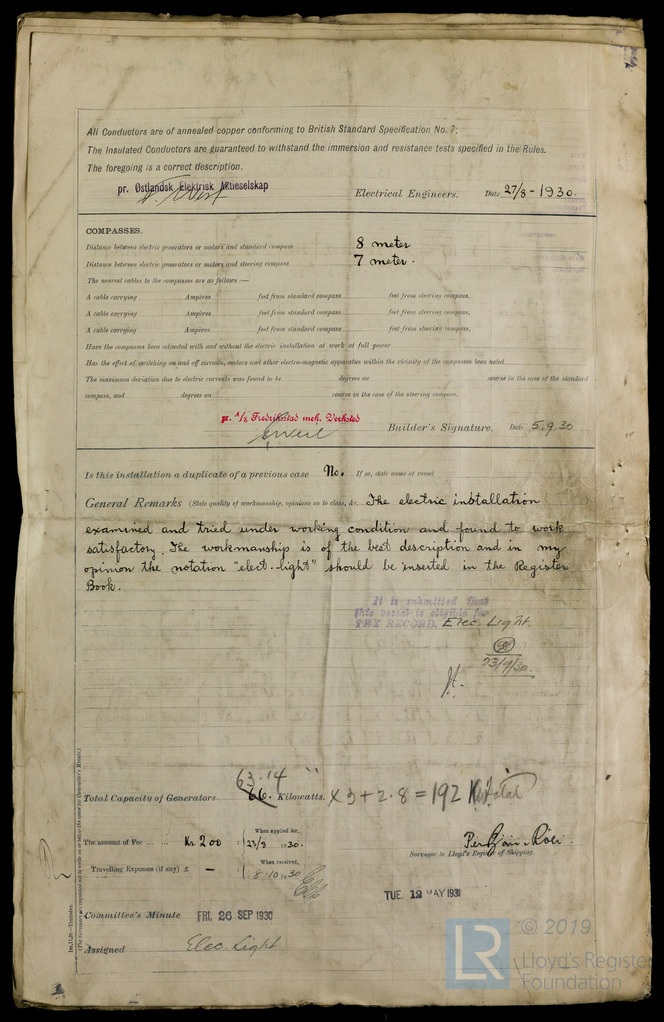 All Conductors are of annealed copper conforming to British Standard Specification No. 7.
The Insulated Conductors are guaranteed to withstand the immersion and resistance tests specified in the Rules.
The foregoing is a correct description.
pr. Østlandsk Elektrisk Aktieselskap
Electrical Engineers. Date 27/8-1930.
COMPASSES.
Distance between electric generators or motors and standard compass 8 meter
Distance between electric generators or motors and steering compass 7 meter.
The nearest cables to the compasses are as follows:—
A cable carrying Ampères feet from standard compass feet from steering compass.
A cable carrying Ampères feet from standard compass feet from steering compass.
A cable carrying Ampères feet from standard compass feet from steering compass.
Have the compasses been adjusted with and without the electric installation at work at full power
Has the effect of switching on and off circuits, motors and other electro-magnetic apparatus within the vicinity of the compasses been noted
The maximum deviation due to electric currents was found to be degrees on course in the case of the standard
compass, and degrees on course in the case of the steering compass.
pr. A/S Fredrikstad mek. Verksted
Builder's Signature. Date 5.9.30
Is this installation a duplicate of a previous case No. If so, state name of vessel
General Remarks (State quality of workmanship, opinions as to class, &c. The electric installation
examined and tried under working condition and found to work
satisfactory. The workmanship is of the best description and in my
opinion the notation "elect. light" should be inserted in the Register
Book.
It is submitted that
this vessel is eligible for
THE RECORD. Elec. Light.
23/9/30.
63.14
Total Capacity of Generators 66. Kilowatts. x 3 + 2.8 = 192 Kw total
The amount of Fee ... ... Kr. 200 When applied for, 23/8 1930.
Surveyor to Lloyd's Register of Shipping.
Travelling Expenses (if any) £ — When received, 8.10.1930
TUE. 12 MAY 1931
Committee's Minute FRI. 26 SEP 1930
Assigned Elec. Light
(The Surveyors are requested not to write on or below the space for Committee's Minute.)
© 2019
LR Lloyd's Register
Foundation